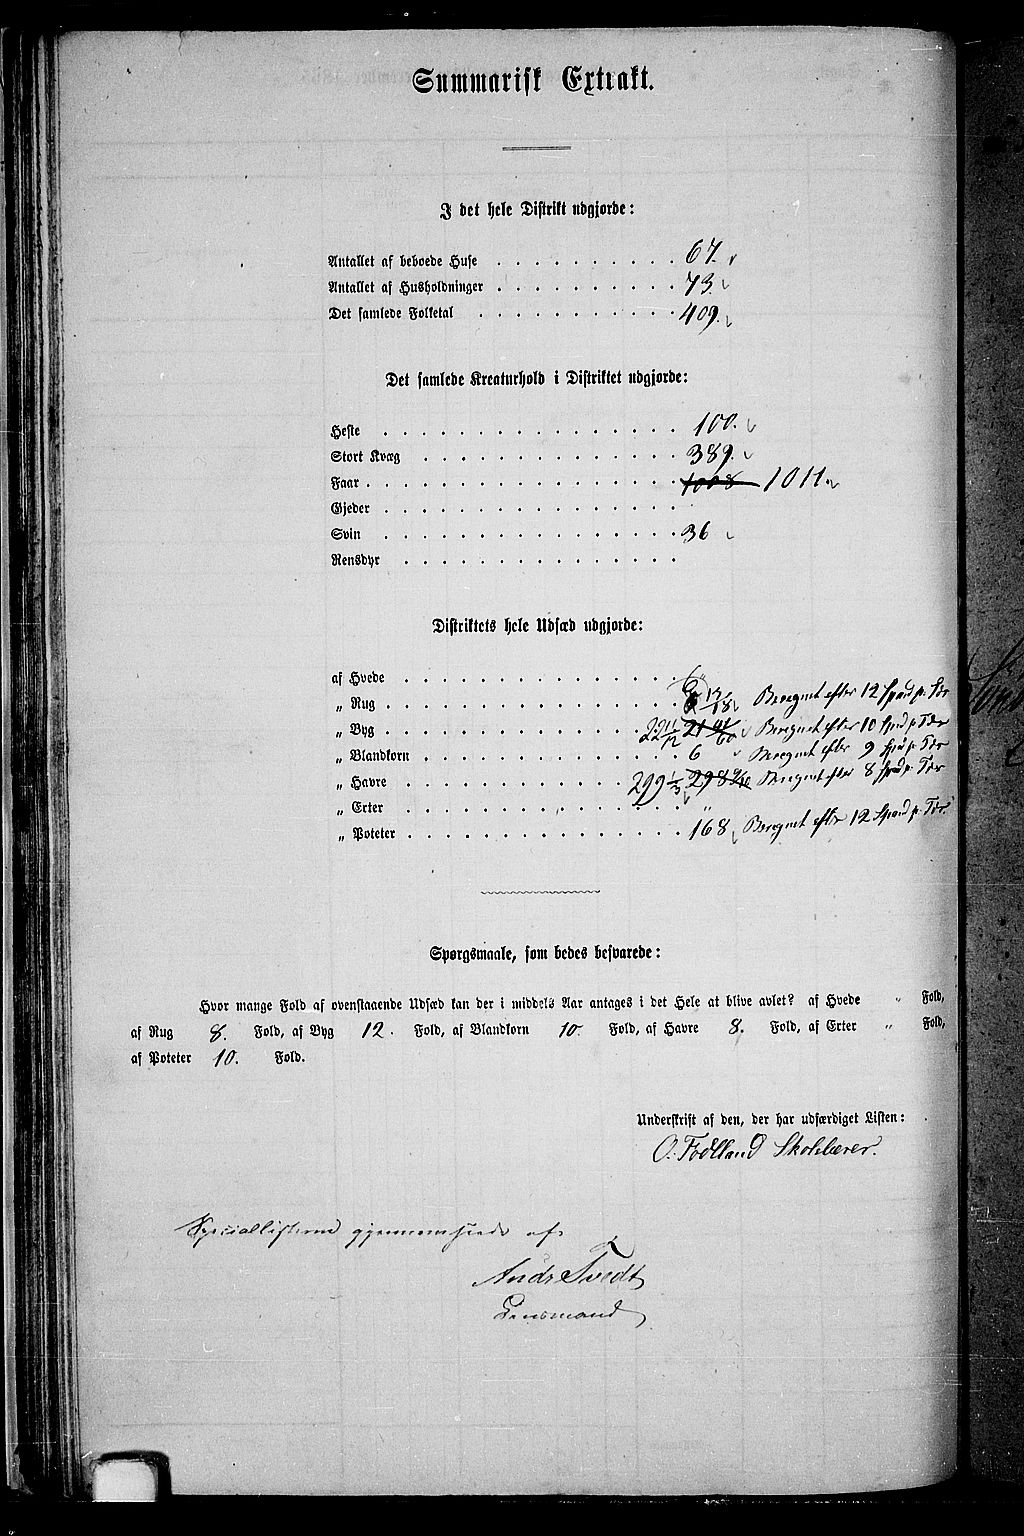 Summarisk Extrakt.
I det hele Distrikt udgjorde:
Antallet af beboede Huse . . . . . . . . . . 67.
Antallet af Husholdninger . . . . . . . . . . 73.
Det samlede Folketal . . . . . . . . . . . 409.
Det samlede Kreaturhold i Distriktet udgjorde:
Heste . . . . . . . . . . . . . . . . 100.
Stort Kvæg . . . . . . . . . . . . . . 389.
Faar . . . . . . . . . . . . . . . . . 1008 1011.
Gjeder . . . . . . . . . . . . . . . .
Svin . . . . . . . . . . . . . . . . 36
Rensdyr . . . . . . . . . . . . . . .
Distriktets hele Udsæd udgjorde:
af Hvede . . . . . . . . . . . . . . .
„ Rug . . . . . . . . . . . . . . . Beregnet efter 12 Spand pr. Tør
„ Byg . . . . . . . . . . . . . . . 22 11/12 21 41/60 Beregnet efter 10 Spd pr. Tør
„ Blandkorn . . . . . . . . . . . . . 6 Beregnet efter 9 Spd pr. Tør
„ Havre . . . . . . . . . . . . . . 299 1/3 Beregnet efter 8 Spd pr. Tør
„ Erter . . . . . . . . . . . . . . . "
„ Poteter . . . . . . . . . . . . . . 168 Beregnet efter 12 Spand pr. Tør.
Spørgsmaale, som bedes besvarede:
Hvor mange Fold af ovenstaaende Udsæd kan der i middels Aar antages i det Hele at blive avlet? af Hvede " Fold,
af Rug 8. Fold, af Byg 12. Fold, af Blandkorn 10. Fold, af Havre 8. Fold, af Erter " Fold,
af Poteter 10. Fold.
Underskrift af den, der har udfærdiget Listen:
O. Fodlland Skolelærer.
Speciallisterne gjennemseede af
Andr Tvedt
Lensmand